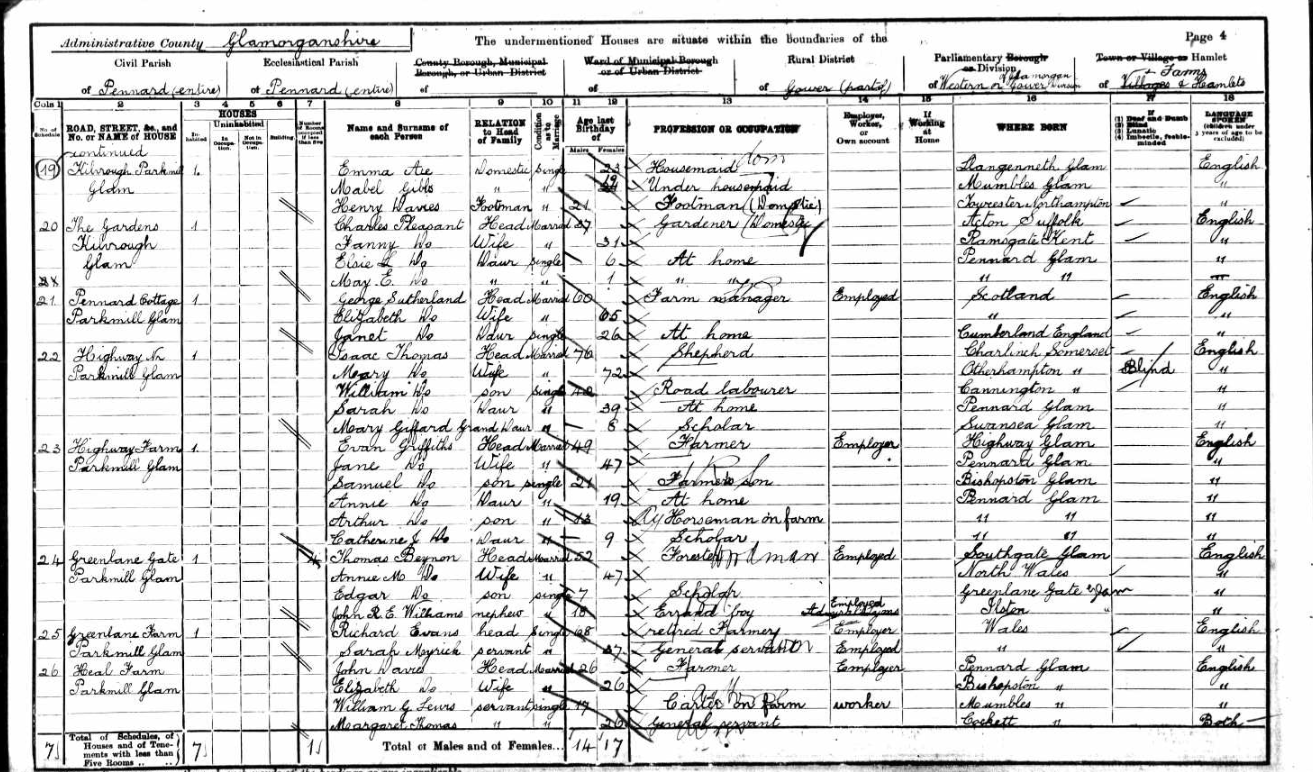 Page 4
Administrative County Glamorganshire The undermentioned Houses are situate within the boundaries of the
Civil Parish Ecclesiastical Parish County Borough, Municipal Borough, or Urban District Ward of Municipal Borough or of Urban District Rural District Parliamentary Borough or Division Town or Village or Hamlet
of Pennard (entire) of Pennard (entire) of of of Gower (part of) of Western or Gower Division of Glamorgan of Villages & Hamlets + Farms
Cols 1 2 3 4 5 6 7 8 9 10 11 12 13 14 15 16 17 18
No. of Schedule ROAD, STREET, &c., and No. or NAME of HOUSE HOUSES Inhabited Uninhabited In Occupation. Not in Occupation. Building Number of Rooms occupied if less than five Name and Surname of each Person RELATION to Head of Family Condition as to Marriage Age last Birthday of Males Females PROFESSION OR OCCUPATION Employer, Worker, or Own account If Working at Home WHERE BORN If (1) Deaf and Dumb (2) Blind (3) Lunatic (4) Imbecile, feeble-minded LANGUAGE SPOKEN (children under 3 years of age to be excluded)
continued
19 Kilvrough Parkmill 1 Emma Domestic Single 23 Housemaid Dom Llangenneth Glam English
Glam Mabel Gibbs " " Under housemaid Mumbles Glam "
Henry Davies Footman " 21 Footman (Domestic) Towcester Northampton "
20 The Gardens 1 Charles Pleasant Head Married 37 Gardener (Domestic) Acton Suffolk English
Kilvrough Fanny Do Wife " 31 Ramsgate Kent "
Glam Elsie L Do Daur Single 6 At home Pennard Glam "
May E. Do " " 1 " " " "
21 Pennard Cottage 1 George Sutherland Head Married 60 Farm manager Employed Scotland English
Parkmill Glam Elizabeth Do Wife " 65 " "
Janet Do Daur Single 26 At home Cumberland England "
22 Highway Nr 1 Isaac Thomas Head Married 76 Shepherd Charlinch Somerset English
Parkmill Glam Mary Do Wife " 72 Otherhampton " Blind "
William Do son single 42 Road labourer Cannington " "
Sarah Do Daur " 39 At home Pennard Glam "
Mary Giffard Grand Daur " 8 Scholar Swansea Glam "
23 Highway Farm 1 Evan Griffiths Head Married 49 Farmer Employer Highway Glam English
Parkmill Glam Jane Do Wife " 47 Pennard Glam "
Samuel Do son single 21 Farmers son Bishopston Glam "
Annie Do Daur " 19 At home Pennard Glam "
Arthur Do son " 13 Horseman on farm " " "
Catherine J Do Daur " 9 Scholar " " "
24 Greenlane Gate 1 4 Thomas Beynon Head Married 52 Forester Woodman Employed Southgate Glam English
Parkmill Glam Annie M Do Wife " 47 North Wales "
Edgar Do son single 7 Scholar Greenlane Gate Glam
John R. E. Williams nephew " 18 Errand boy Employed Ilston " "
25 Greenlane Farm 1 Richard Evans head Single 68 retired Farmer Employer Wales English
Parkmill Glam Sarah Meyrick servant " 37 General servant Employed " "
26 Heal Farm John Davies Head Married 26 Farmer Employer Pennard Glam English
Parkmill Glam Elizabeth Do Wife " 26 Bishopston " "
William G Lewis servant single 17 Carter on farm worker Mumbles " "
Margaret Thomas " " 26 General servant Cockett " Both
7 Total of Schedules, of Houses and of Tenements with less than Five Rooms 7 1 Total of Males and of Females... 14 17